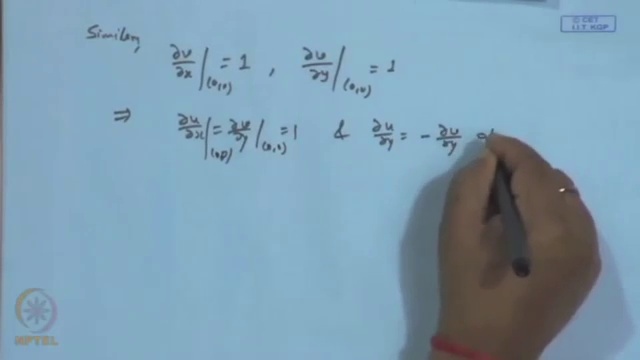 © CET
I.I.T. KGP
Similarly
∂v/∂x|(0,0) = 1 , ∂v/∂y|(0,0) = 1
⇒ ∂u/∂x|(0,0) = ∂v/∂y|(0,0) = 1 & ∂u/∂y = - ∂v/∂y
NPTEL